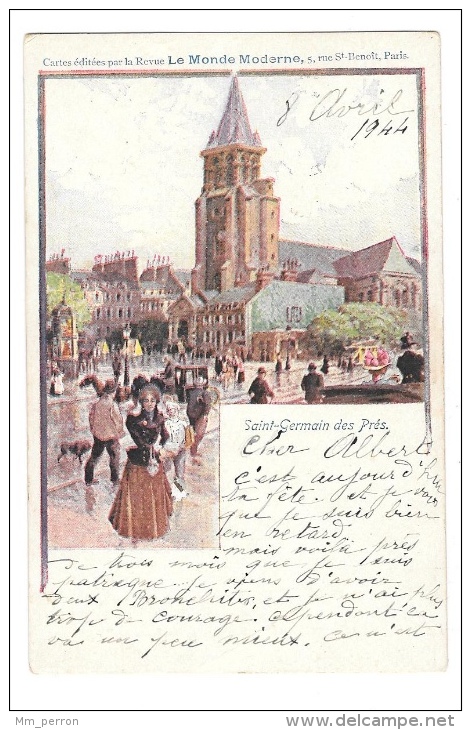 Cartes éditées par la Revue Le Monde Moderne, 5, rue St-Benoît, Paris.
8 Avril
1944
Saint-Germain des Prés.
Cher Albert
c'est aujourd'hui
ta fête. et je vois
que je suis bien
en retard.
mais voilà près
de trois mois que je suis
patraque je viens d'avoir
deux Bronchites, et je n'ai plus
trop de courage. cependant ca
va un peu mieux. ce n'est
Mm_perron